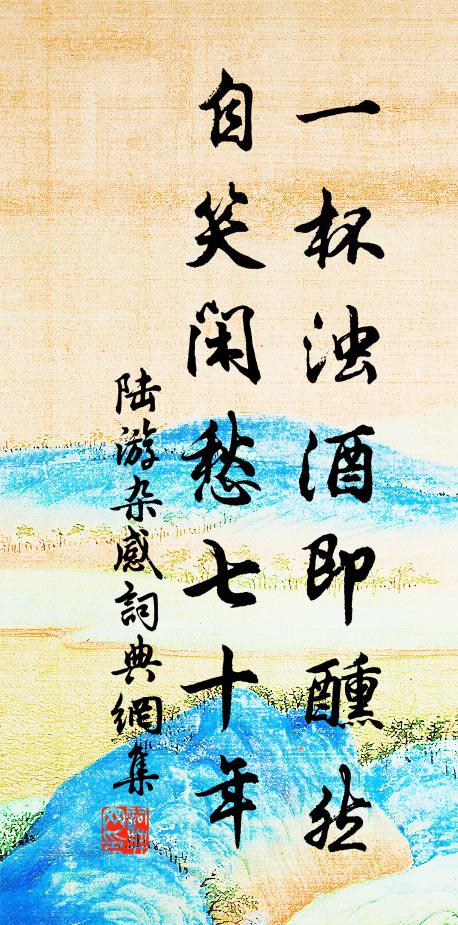 一杯浊酒即醺然
自笑闲愁七十年
陆游杂感詞典網集